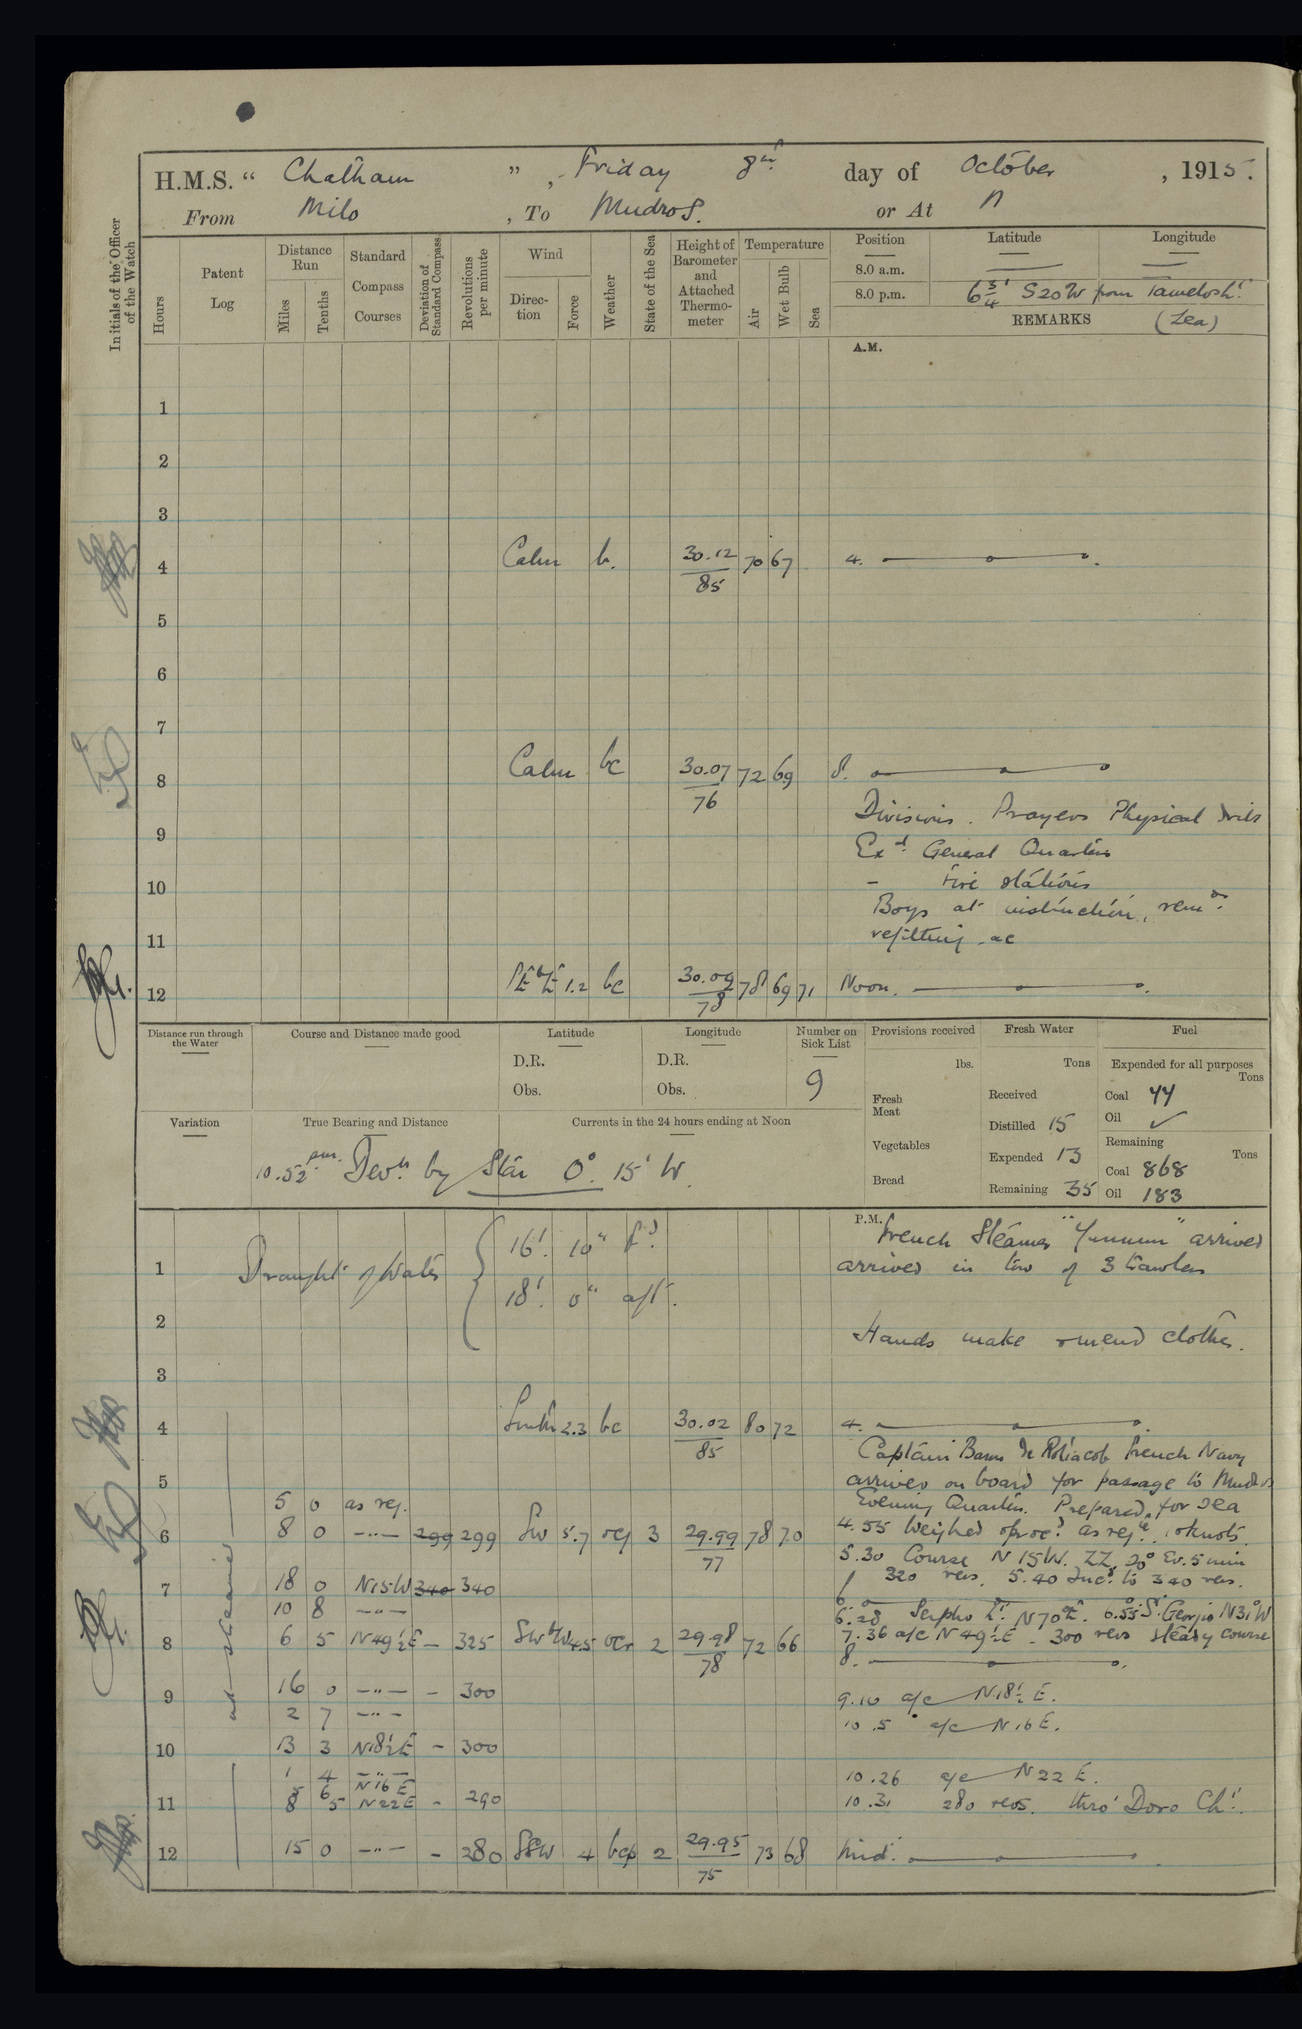 H.M.S. “ Chatham ” , Friday 8th day of October , 1915.
From Milo , To Mudros. or At
Initials of the Officer of the Watch
Hours
Patent Log
Distance Run
Miles
Tenths
Standard Compass Courses
Deviation of Standard Compass
Revolutions per minute
Wind
Direction
Force
Weather
State of the Sea
Height of Barometer and Attached Thermometer
Temperature
Air
Wet Bulb
Sea
Position Latitude Longitude
8.0 a.m. — —
8.0 p.m. 6 3/4' S20W from Tamelosh Lt.
REMARKS (Zea)
A.M.
1
2
3
4 Calm b. 30.12/85 70 67 4.
5
6
7
8 Calm bc 30.07/76 72 69 8.
Divisions. Prayers Physical drill
9
Exd. General Quarters
10 - Fire stations
Boys at instruction, remdr.
11 refitting &c
12 SE by E 1.2 bc 30.09/78 78 69 71 Noon.
Distance run through the Water
Course and Distance made good
Latitude
D.R.
Obs.
Longitude
D.R.
Obs.
Number on Sick List
9
Provisions received
lbs.
Fresh Meat
Vegetables
Bread
Fresh Water
Tons
Received
Distilled 15
Expended 13
Remaining 35
Fuel
Expended for all purposes
Tons
Coal 44
Oil ✓
Remaining
Tons
Coal 868
Oil 183
Variation
True Bearing and Distance
Currents in the 24 hours ending at Noon
10.52 pm. Devn. by Star 0° 15' W.
P.M.
French Steamer " " arrived
1 Draught of Water { 16'. 10" fd. arrived in tow of 3 trawlers
18'. 0" aft.
2 Hands make & mend clothes.
3
4 South 2.3 bc 30.02/85 80 72 4.
Captain French Navy
5 arrived on board for passage to Mudros
5 0 as req. Evening Quarters. Prepared for sea
6 8 0 —"— 299 299 SW 5.7 ocq 3 29.99/77 78 70 4.55 Weighed & proc. as reqte. knots.
5.30 Course N15W. ZZ 20° Ev. 5 min
7 18 0 N15W 340 340 320 revs. 5.40 Incd. to 340 revs.
6.
10 8 —"— 6.28 Serpho Lt. N70E. 6.55 St. Georgio N31W
8 6 5 N49½E — 325 SW by W 4.5 ocr 2 29.98/78 72 66 7.36 a/c N49½E. 300 revs steady course
8.
9 16 0 —"— - 300 9.10 a/c N18½E.
2 7 —"— 10.5 a/c N16E.
10 13 3 N18½E - 300
1 4 —"— 10.26 a/c N22E.
5 6 N16E
11 8 5 N22E - 290 10.31 280 revs. thro' Doro Chl.
12 15 0 —"— - 280 SSW 4 bcp 2 29.95/75 73 68 Mid.
at steamed